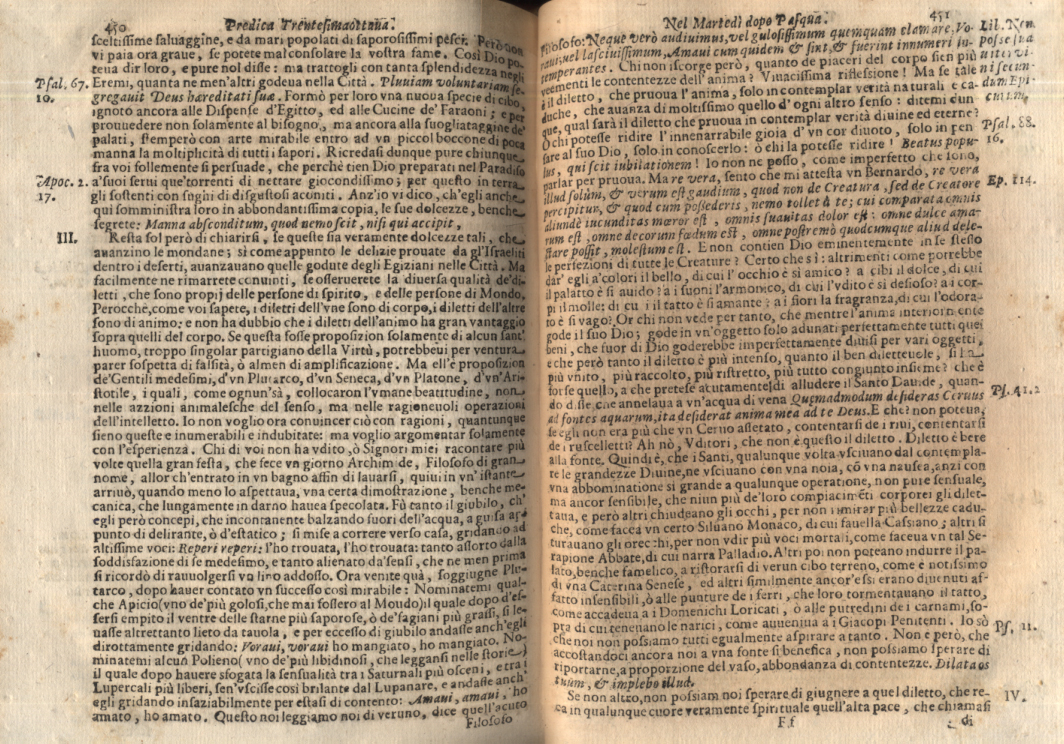 450 Predica Trentesimaottaua.
sceltissime saluaggine, e da mari popolati di saporosissimi pesci. Però non
vi paia ora graue, se potete mal consolare la vostra fame. Così Dio po-
teua dir loro, e pure nol disse: ma trattogli con tanta splendidezza negli
Psal. 67. Eremi, quanta ne men'altri godeua nella Città. Pluuiam voluntariam se-
10. gregauit Deus hæreditati suæ. Formò per loro vna nuoua specie di cibo,
ignoto ancora alle Dispense d'Egitto, ed alle Cucine de' Faraoni; e per
prouuedere non solamente al bisogno, ma ancora alla suogliataggine de'
palati, stemperò con arte mirabile entro ad vn piccol boccone di poca
manna la moltiplicità di tutti i sapori. Ricredasi dunque pure chiunque
fra voi follemente si persuade, che perchè tien Dio preparati nel Paradiso
Apoc. 2. a'suoi serui que'torrenti di nettare giocondissimo; per questo in terra
17. gli sostenti con sughi di disgustosi aconiti. Anz'io vi dico, ch'egli anche
qui somministra loro in abbondantissima copia, le sue dolcezze, benche
segrete: Manna absconditum, quod nemo scit, nisi qui accipit,
III. Resta sol però di chiarirsi, se queste sia veramente dolcezze tali, che
auanzino le mondane; si come appunto le delizie prouate da gl'Israeliti
dentro i deserti, auanzauano quelle godute degli Egiziani nelle Città. Ma
facilmente ne rimarrete conuinti, se osseruerete la diuersa qualità de'di-
letti, che sono proprj delle persone di spirito, e delle persone di Mondo.
Perocchè, come voi sapete, i diletti dell'vne sono di corpo, i diletti dell'altre
sono di animo: e non ha dubbio che i diletti dell'animo ha gran vantaggio
sopra quelli del corpo. Se questa fosse proposizion solamente di alcun sant'
huomo, troppo singolar partigiano della Virtù, potrebbeui per ventura
parer sospetta di falsità, ò almen di amplificazione. Ma ell'è proposizion
de'Gentili medesimi, d'vn Plutarco, d'vn Seneca, d'vn Platone, d'vn'Ari-
stotile, i quali, come ognun'sà, collocaron l'vmane beatitudine, non
nelle azzioni animalesche del senso, ma nelle ragioneuoli operazioni
dell'intelletto. Io non voglio ora conuincer ciò con ragioni, quantunque
sieno queste e inumerabili e indubitate: ma voglio argomentar solamente
con l'esperienza. Chi di voi non ha vdito, ò Signori miei racontare più
volte quella gran festa, che fece vn giorno Archimede, Filosofo di gran
nome, allor ch'entrato in vn bagno affin di lauarsi, quiui in vn'istante
arriuò, quando meno lo aspettaua, vna certa dimostrazione, benche me-
canica, che lungamente in darno hauea specolata. Fù tanto il giubilo, ch'
egli però concepì, che incontanente balzando fuori dell'acqua, a guisa ap-
punto di delirante, ò d'estatico; si mise a correre verso casa, gridando ad
altissime voci: Reperi reperi: l'ho trouata, l'ho trouata: tanto assorto dalla
soddisfazione di se medesimo, e tanto alienato da'sensi, che ne men prima
si ricordò di rauuolgersi vn lino addosso. Ora venite quà, soggiugne Plu-
tarco, dopo hauer contato vn successo così mirabile: Nominatemi qual-
che Apicio(vno de'più golosi, che mai fossero al Mondo)il quale dopo d'es-
sersi empito il ventre delle starne più saporose, ò de'fagiani più grassi, si le-
uasse altrettanto lieto da tauola, e per eccesso di giubilo andasse anch'egli
dirottamente gridando: Voraui, voraui ho mangiato, ho mangiato. No-
minatemi alcun Polieno( vno de'più libidinosi, che leggansi nelle storie)
il quale dopo hauere sfogata la sensualità tra i Saturnali più osceni, e tra i
Lupercali più liberi, sen'vscisse così brilante dal Lupanare, e andasse anch'
egli gridando insaziabilmente per estasi di contento: Amaui, amaui, ho
amato, ho amato. Questo noi leggiamo noi di veruno, dice quell'acuto
Filosofo
Nel Martedì dopo Pasqua. 451
Filosofo: Neque verò audiuimus, vel gulosissimum quemquam clamare, Vo- Lib. Non
raui; vel lasciuissimum, Amaui cum quidem & sint, & fuerint innumeri in- posse sua
temperantes. Chi non iscorge però, quanto de piaceri del corpo sien più uiter vi-
veementi le contentezze dell'anima? Viuacissima riflessione! Ma se tale ni secun-
è il diletto, che pruoua l'anima, solo in contemplar verità naturali e ca- dum Epi-
duche, che auanza di moltissimo quello d'ogni altro senso: ditemi dun- curum.
que, qual sarà il diletto che pruoua in contemplar verità diuine ed eterne?
O chi potesse ridire l'innenarrabile gioia d'vn cor diuoto, solo in pen Psal. 88.
sare al suo Dio, solo in conoscerlo: ò chi la potesse ridire! Beatus popu- 16.
lus, qui scit iubilationem! Io non ne posso, come imperfetto che sono,
parlar per pruoua. Ma re vera, sento che mi attesta vn Bernardo, re vera
illud solùm, & verum est gaudium, quod non de Creatura, sed de Creatore Ep. 114.
percipitur, & quod cum possederis, nemo tollet à te; cui comparata omnis
aliundè iucunditas mœror est, omnis suauitas dolor est: omne dulce ama-
rum est, omne decorum fœdum est, omne postremò quodcumque aliud dele-
ctare possit, molestum est. E non contien Dio eminentemente in se stesso
le perfezioni di tutte le Creature? Certo che sì: altrimenti come potrebbe
dar' egli a'colori il bello, di cui l'occhio è sì amico? a cibi il dolce, di cui
il palatto è sì auido? a i suoni l'armonico, di cui l'vdito è sì desioso? a i cor-
pi il molle; di cui il tatto è sì amante? ai fiori la fragranza, di cui l'odora-
to è sì vago? Or chi non vede per tanto, che mentre l'anima interiormente
gode il suo Dio; gode in vn'oggetto solo adunati perfettamente tutti quei
beni, che fuor di Dio goderebbe imperfettamente diuisi per vari oggetti,
e che però tanto il diletto è più intenso, quanto il ben dilettеuole, si fà
più vnito, più raccolto, più ristretto, più tutto congiunto insieme? che è
forse quello, a che pretese acutamente di alludere il Santo Dauide, quan-
do disse che annelaua a vn'acqua di vena Quemadmodum desiderat Ceruus Ps. 41. 2
ad fontes aquarum, ita desiderat anima mea ad te Deus. E che? non poteua,
se egli non era più che vn Ceruo assetato, contentarsi de i riui, contentarsi
de i ruscelletti? Ah nò, Vditori, che non è questo il diletto. Diletto è bere
alla fonte. Quindi è, che i Santi, qualunque volta vsciuano dal contempla-
re le grandezze Diuine, ne vsciuano con vna noia, cō vna nausea, anzi con
vna abbominatione sì grande a qualunque operatione, non pure sensuale,
ma ancor sensibile, che niun più de'loro compiacimēti corporei gli dilet-
taua, e però altri chiudeano gli occhi, per non rimirar più bellezze cadu-
che, come facea vn certo Siluano Monaco, di cui fauella Cassiano; altri si
turauano gli orecchi, per non vdir più voci mortali, come faceua vn tal Se-
rapione Abbate, di cui narra Palladio. Altri poi non poteano indurre il pa-
lato, benche famelico, a ristorarsi di verun cibo terreno, come è notissimo
di vna Caterina Senese, ed altri similmente ancor'essi erano diuenuti af-
fatto insensibili, ò alle punture de i ferri, che loro tormentauano il tatto,
come accadeua a i Domenichi Loricati, ò alle putredini de i carnami, so-
pra di cui teneuano le narici, come auueniua a i Giacopi Penitenti. Io sò Ps. 11.
che noi non possiamo tutti egualmente aspirare a tanto. Non è però, che
accostandoci ancora noi a vna fonte sì benefica, non possiamo sperare di
riportarne, a proporzione del vaso, abbondanza di contentezze. Dilata os
tuum, & implebo illud.
Se non altro, non possiam noi sperare di giugnere a quel diletto, che re- IV.
ca in qualunque cuore veramente spirituale quell'alta pace, che chiamasi
F f di